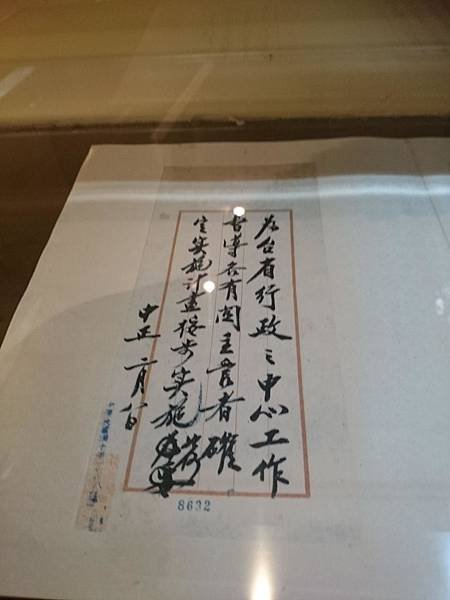 為台省行政之中心工作
督導各有關主管者確
定實施計畫按步實施
中正 二月八日
8632